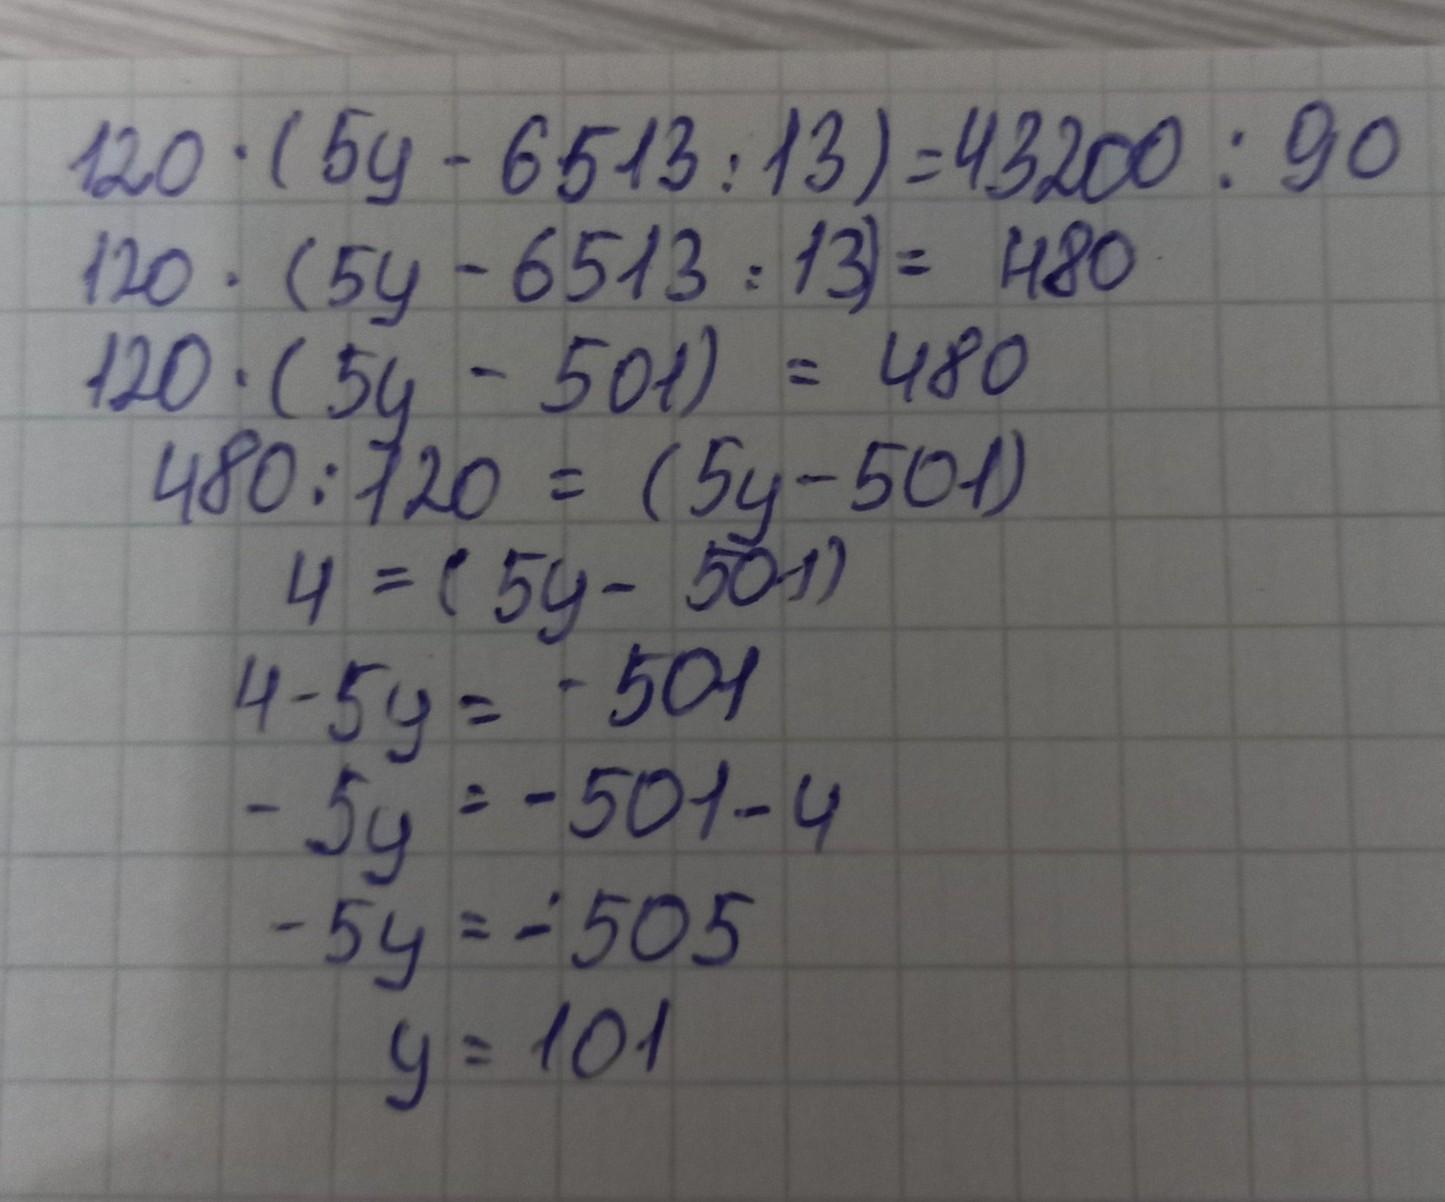 120 · (5y - 6513 : 13) = 43200 : 90
120 · (5y - 6513 : 13) = 480
120 · (5y - 501) = 480
480 : 120 = (5y - 501)
4 = (5y - 501)
4 - 5y = - 501
- 5y = - 501 - 4
- 5y = - 505
y = 101